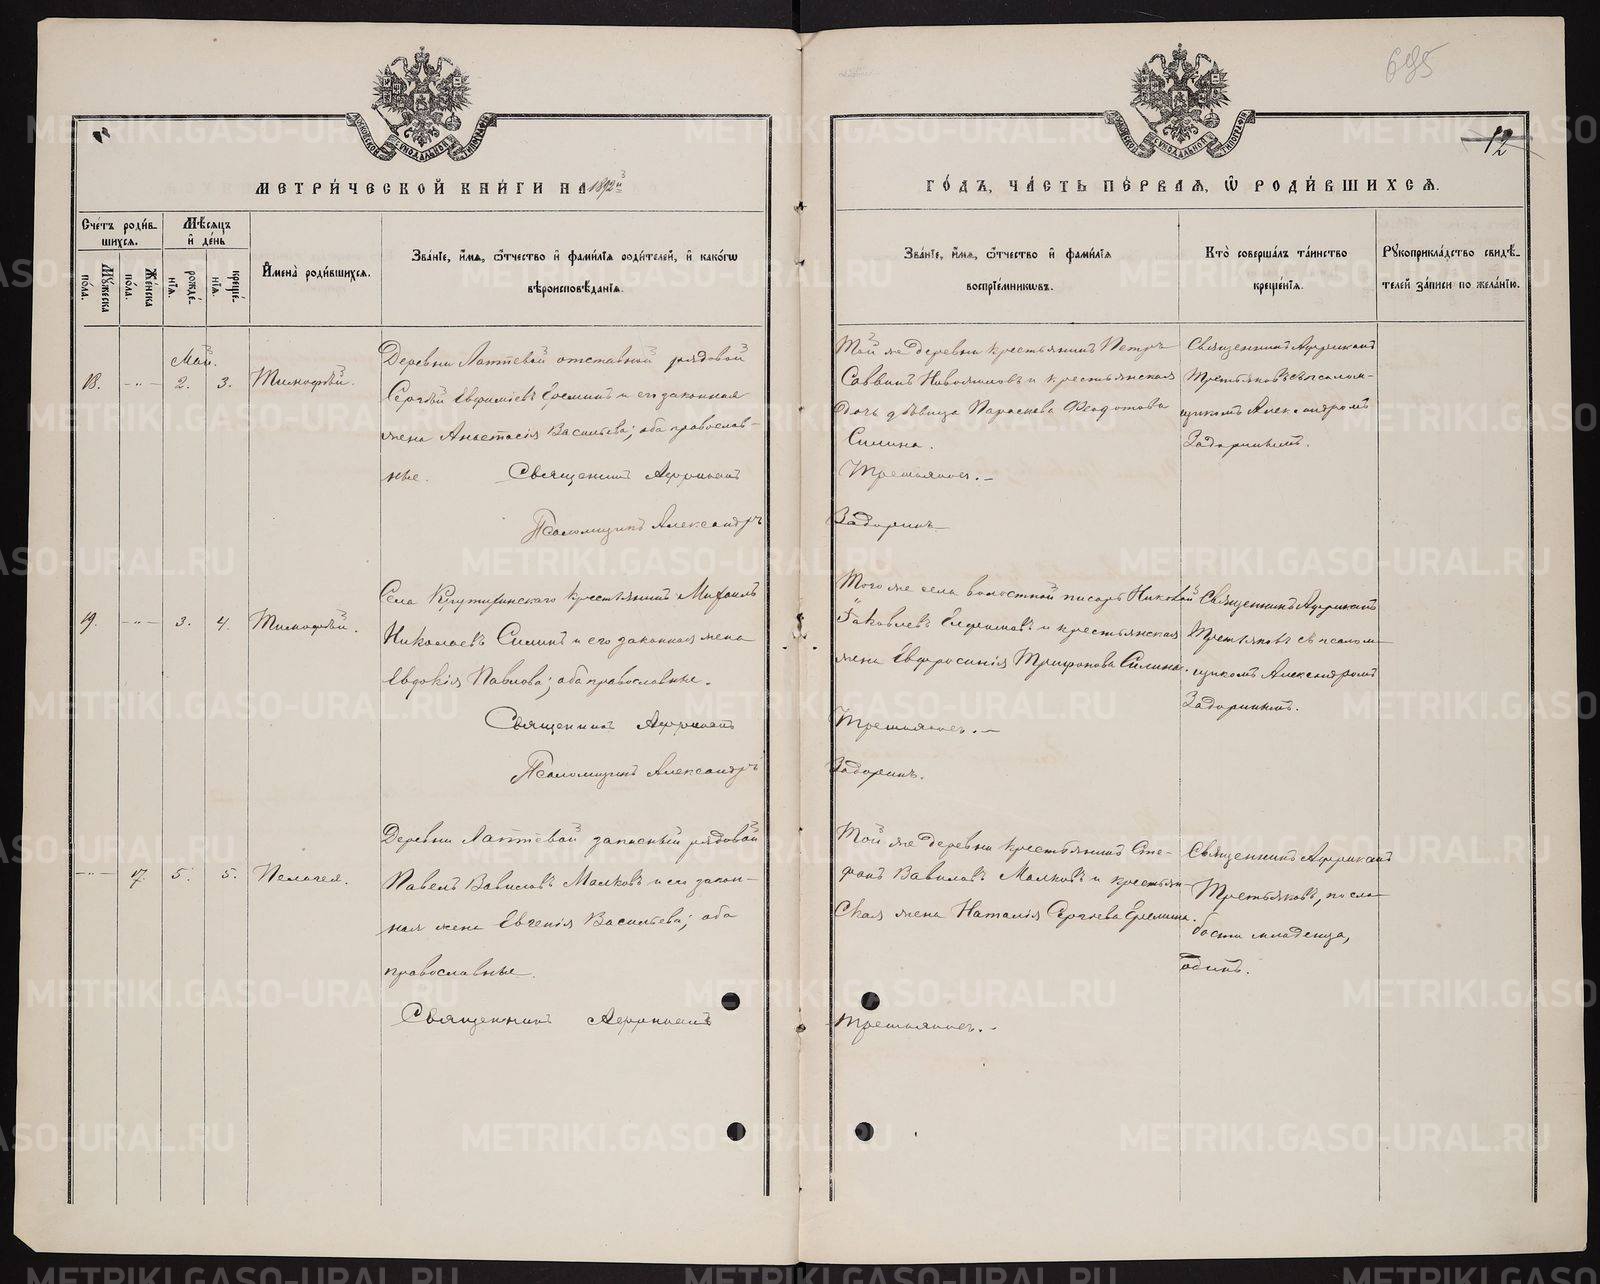 695
12
МОСКОВСКОЙ СѴНОДАЛЬНОЙ ТИПОГРАФІИ
МОСКОВСКОЙ СѴНОДАЛЬНОЙ ТИПОГРАФІИ
МЕТРИ́ЧЕСКОЙ КНИ́ГИ НА 1892й
ГО́ДЪ, ЧА́СТЬ ПЕ́РВАЯ, Ѿ РОДИ́ВШИХСЯ.
Сче́тъ роди́вшихся.
Му́жеска по́ла.
Же́нска по́ла.
Мѣ́сяцъ и҆ де́нь
рожде́нїѧ.
креще́нїѧ.
И҆мена̀ роди́вшихся.
Зва́нїе, и҆́мѧ, ѻ҆́тчество и҆ фами́лїѧ роди́телей, и҆ како́гѡ
вѣроисповѣ́данїѧ.
Зва́нїе, и҆́мѧ, ѻ҆́тчество и҆ фами́лїѧ
воспрїе́мникѡвъ.
Кто̀ соверша́лъ та́инство
креще́нїѧ.
Рꙋкоприкла́дство свидѣ́-
телей за́писи по жела́нїю.
Май.
18. -"- 2. 3. Тимофѣй.
Деревни Лаптевой отставной рядовой
Сергѣй Евфиміевъ Ереминъ и его законная
жена Анастасія Васильева; оба православ-
ные. Священникъ Африканъ
Псаломщикъ Александръ
Той же деревни крестьянинъ Петръ
Саввинъ Новоятловъ и крестьянская
дочь дѣвица Параскева Федотова
Силина.
Третьяковъ.
Задоринъ
Священникъ Африканъ
Третьяковъ съ псалом-
щикомъ Александромъ
Задоринымъ.
19. -"- 3. 4. Тимофѣй.
Села Крутихинскаго крестьянинъ Михаилъ
Николаевъ Силинъ и его законная жена
Евдокія Павлова; оба православные.
Священникъ Африканъ
Псаломщикъ Александръ
Того же села волостной писарь Николай
Іаковлевъ Ефимовъ и крестьянская
жена Евфросинія Трифонова Силина.
Третьяковъ.
Задоринъ.
Священникъ Африканъ
Третьяковъ съ псалом-
щикомъ Александромъ
Задоринымъ.
-"- 17. 5. 5. Пелагея.
Деревни Лаптевой запасный рядовой
Павелъ Вавиловъ Малковъ и его закон-
ная жена Евгенія Васильева; оба
православные.
Священникъ Африканъ
Той же деревни крестьянинъ Сте-
фанъ Вавиловъ Малковъ и крестьян-
ская жена Наталія Сергѣева Еремина.
Третьяковъ.
Священникъ Африканъ
Третьяковъ, по сла-
бости младенца,
одинъ.
METRIKI.GASO-URAL.RU